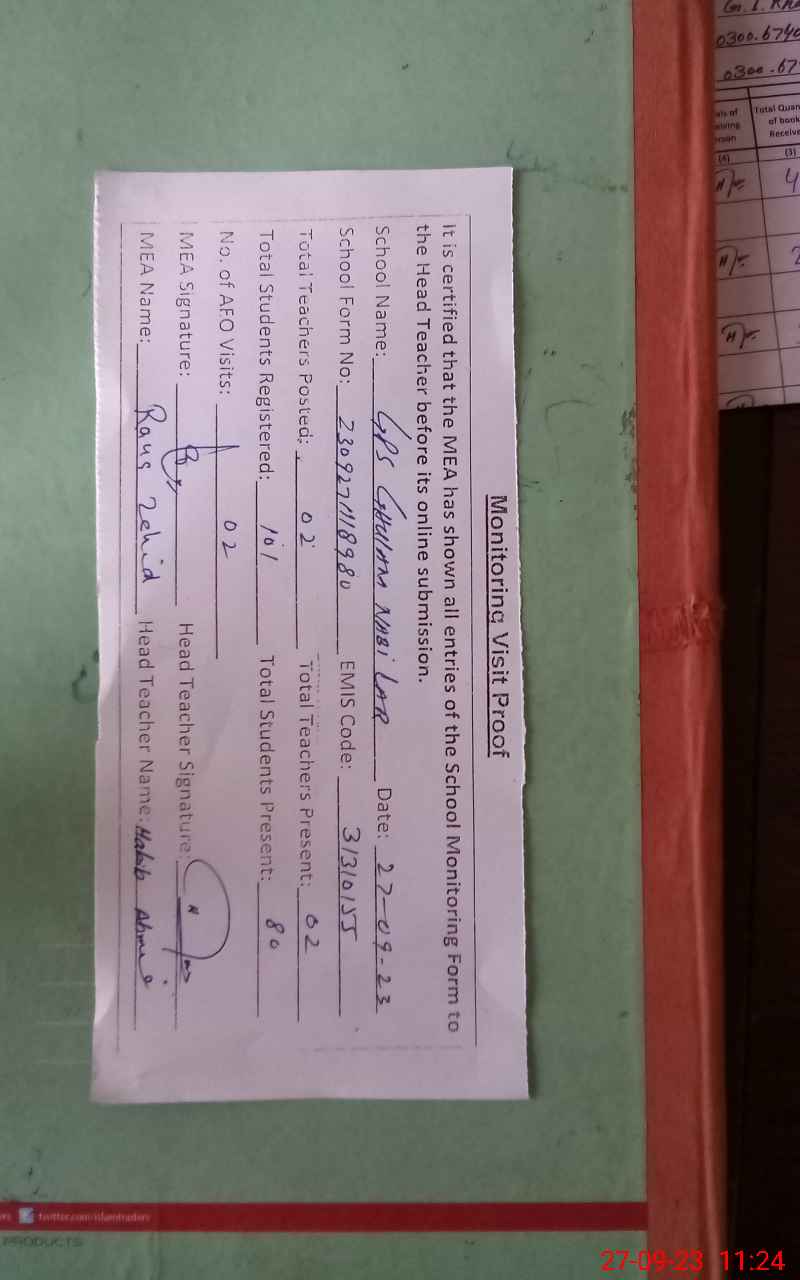 Monitoring Visit Proof
It is certified that the MEA has shown all entries of the School Monitoring Form to
the Head Teacher before its online submission.
School Name: GPS GHULAM NABI LAR Date: 27-09-23
School Form No: 230927118980 EMIS Code: 31310155
Total Teachers Posted: 02 Total Teachers Present: 02
Total Students Registered: 101 Total Students Present: 80
No. of AEO Visits: 02
MEA Signature: Head Teacher Signature:
MEA Name: Zahid Head Teacher Name: Habib Ahmed
0300.6740
0300.67
Total Quan
of book
Receive
(4) (3)
4
2
twitter.com/islamtraders
PRODUCTS
27-09-23 11:24